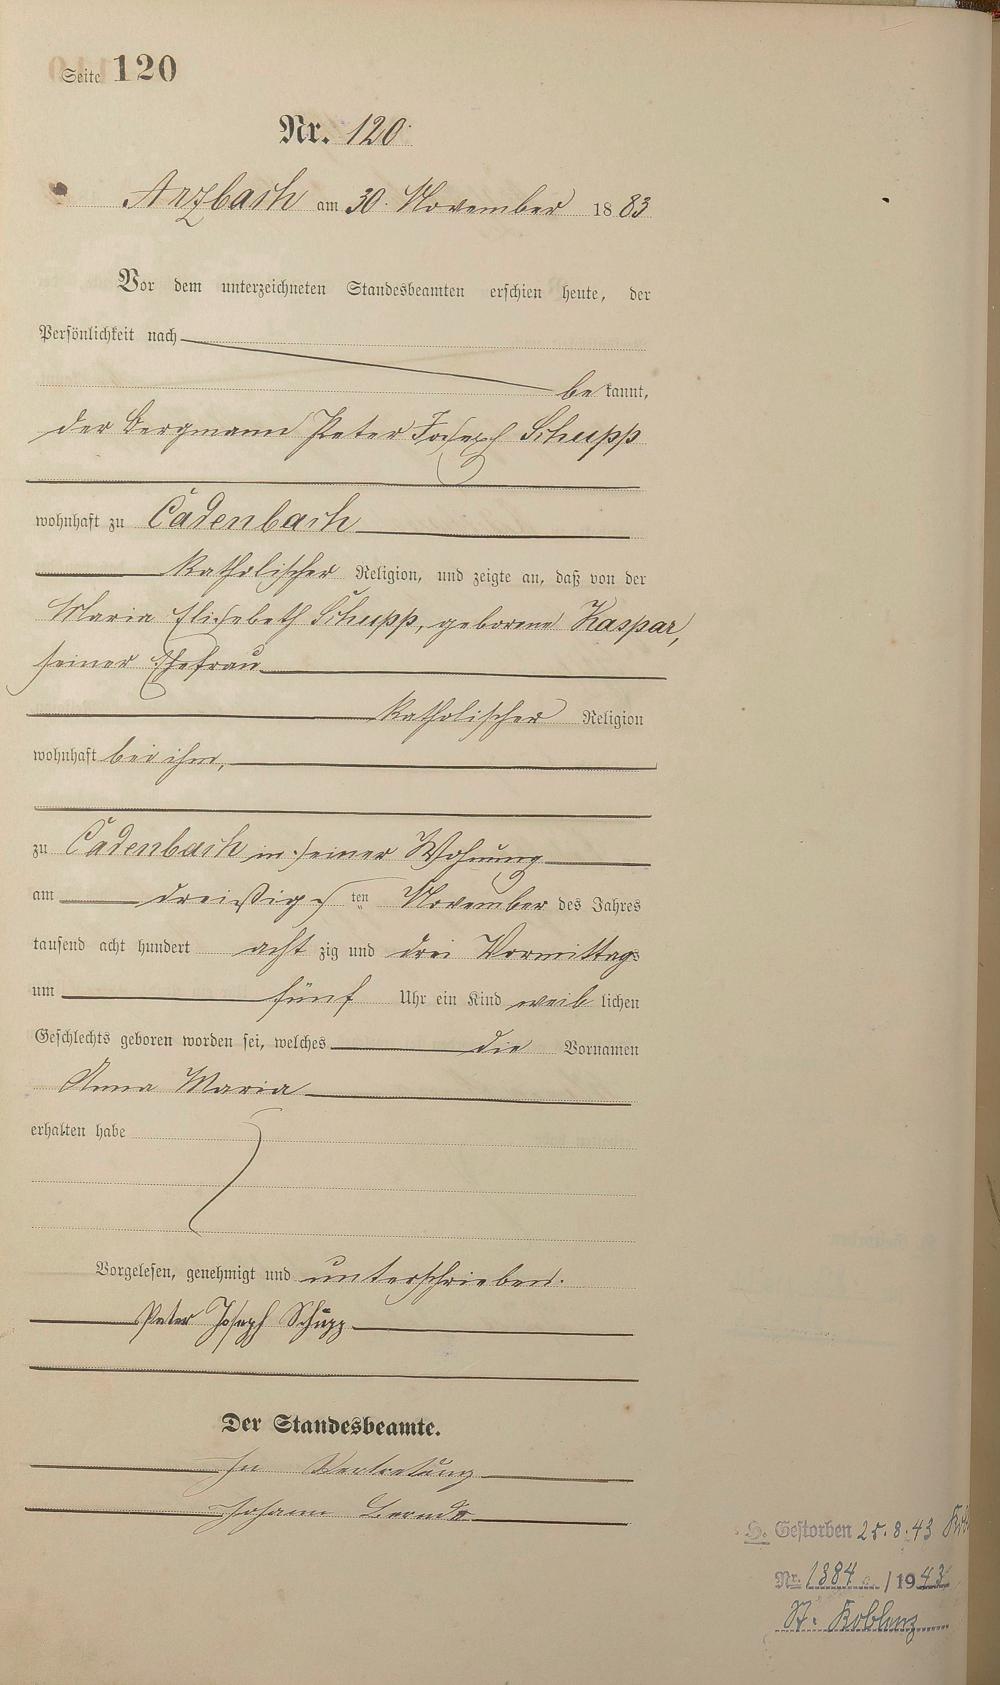 Seite 120
Nr. 120
Arzbach am 30. November 1883
Vor dem unterzeichneten Standesbeamten erschien heute, der
Persönlichkeit nach
bekannt,
der Bergmann Peter Joseph Schupp
wohnhaft zu Cadenbach
katholischer Religion, und zeigte an, daß von der
Maria Elisabeth Schupp, geborene Kaspar,
seiner Ehefrau
katholischer Religion
wohnhaft bei ihm,
zu Cadenbach in seiner Wohnung
am dreißigsten November des Jahres
tausend acht hundert achtzig und drei Vormittags
um fünf Uhr ein Kind weiblichen
Geschlechts geboren worden sei, welches die Vornamen
Anna Maria
erhalten habe
Vorgelesen, genehmigt und unterschrieben.
Peter Joseph Schupp
Der Standesbeamte.
In Vertretung
Johann
H. Gestorben 25.8.43
Nr. 1384 /1943
St. Koblenz